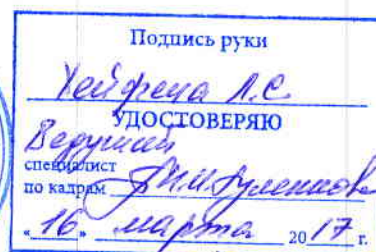 Подпись руки
Хейфеца Л.С.
УДОСТОВЕРЯЮ
Ведущий
специалист
по кадрам
« 16 » марта 2017 г.